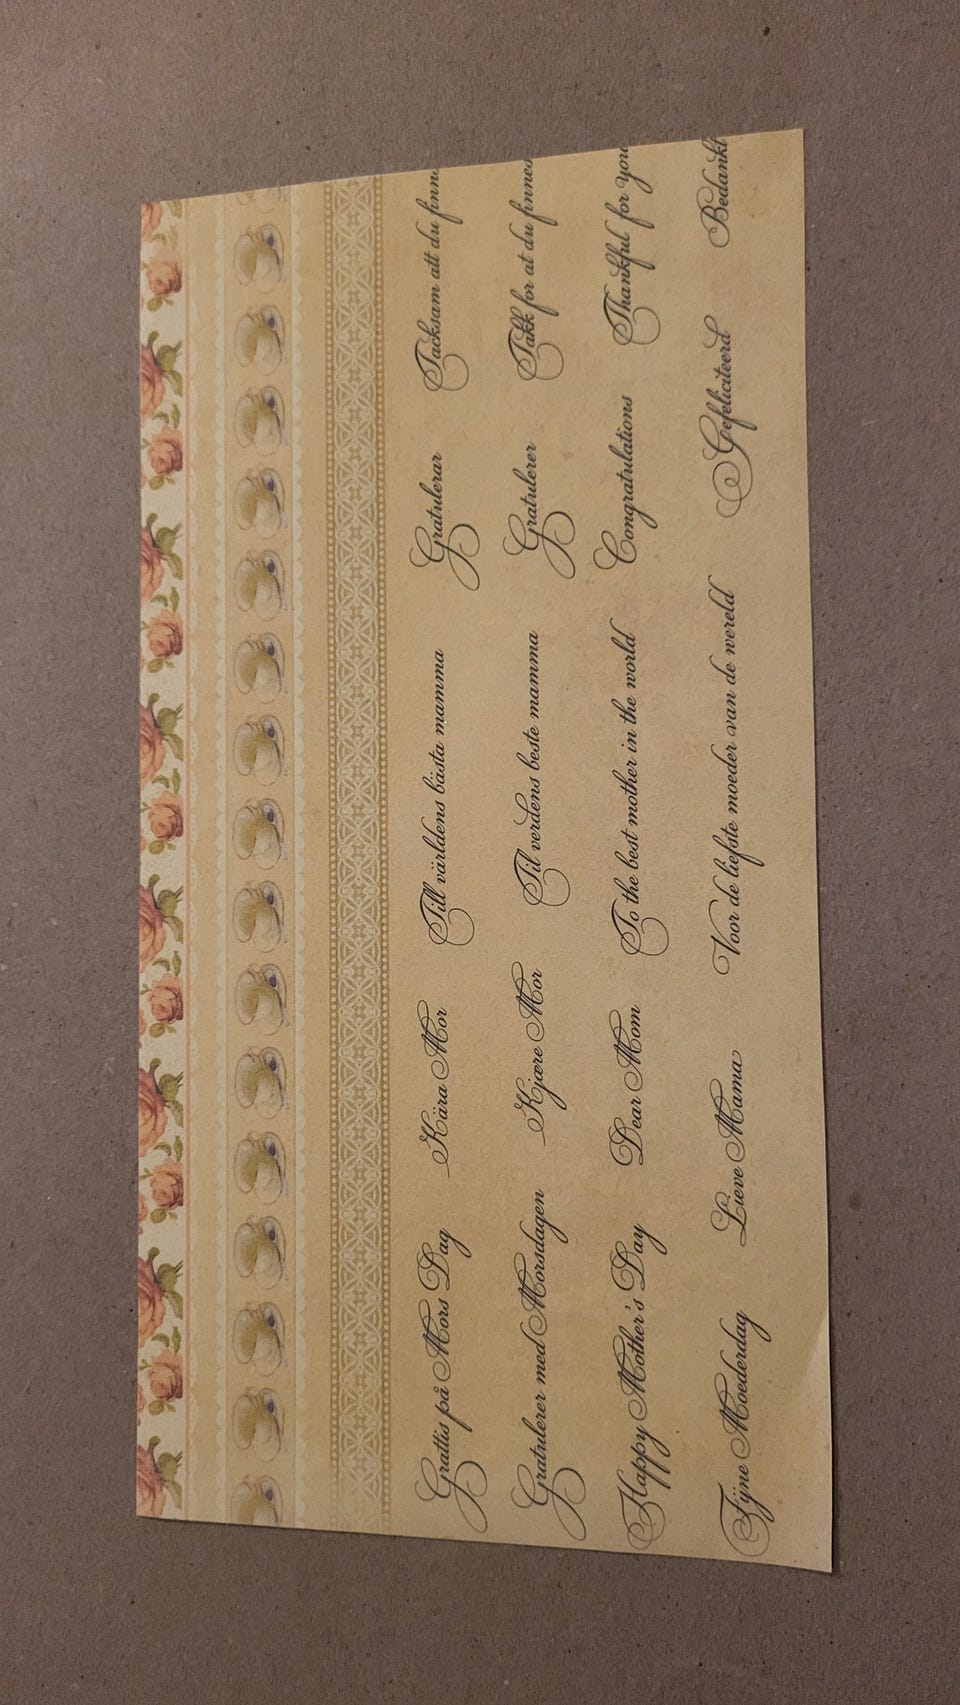 Grattis på Mors Dag Kära Mor Till världens bästa mamma Gratulerar Tacksam att du finns
Gratulerer med Morsdagen Kjære Mor Til verdens beste mamma Gratulerer Takk for at du finnes
Happy Mother's Day Dear Mom To the best mother in the world Congratulations Thankful for you
Fijne Moederdag Lieve Mama Voor de liefste moeder van de wereld Gefeliciteerd Bedankt